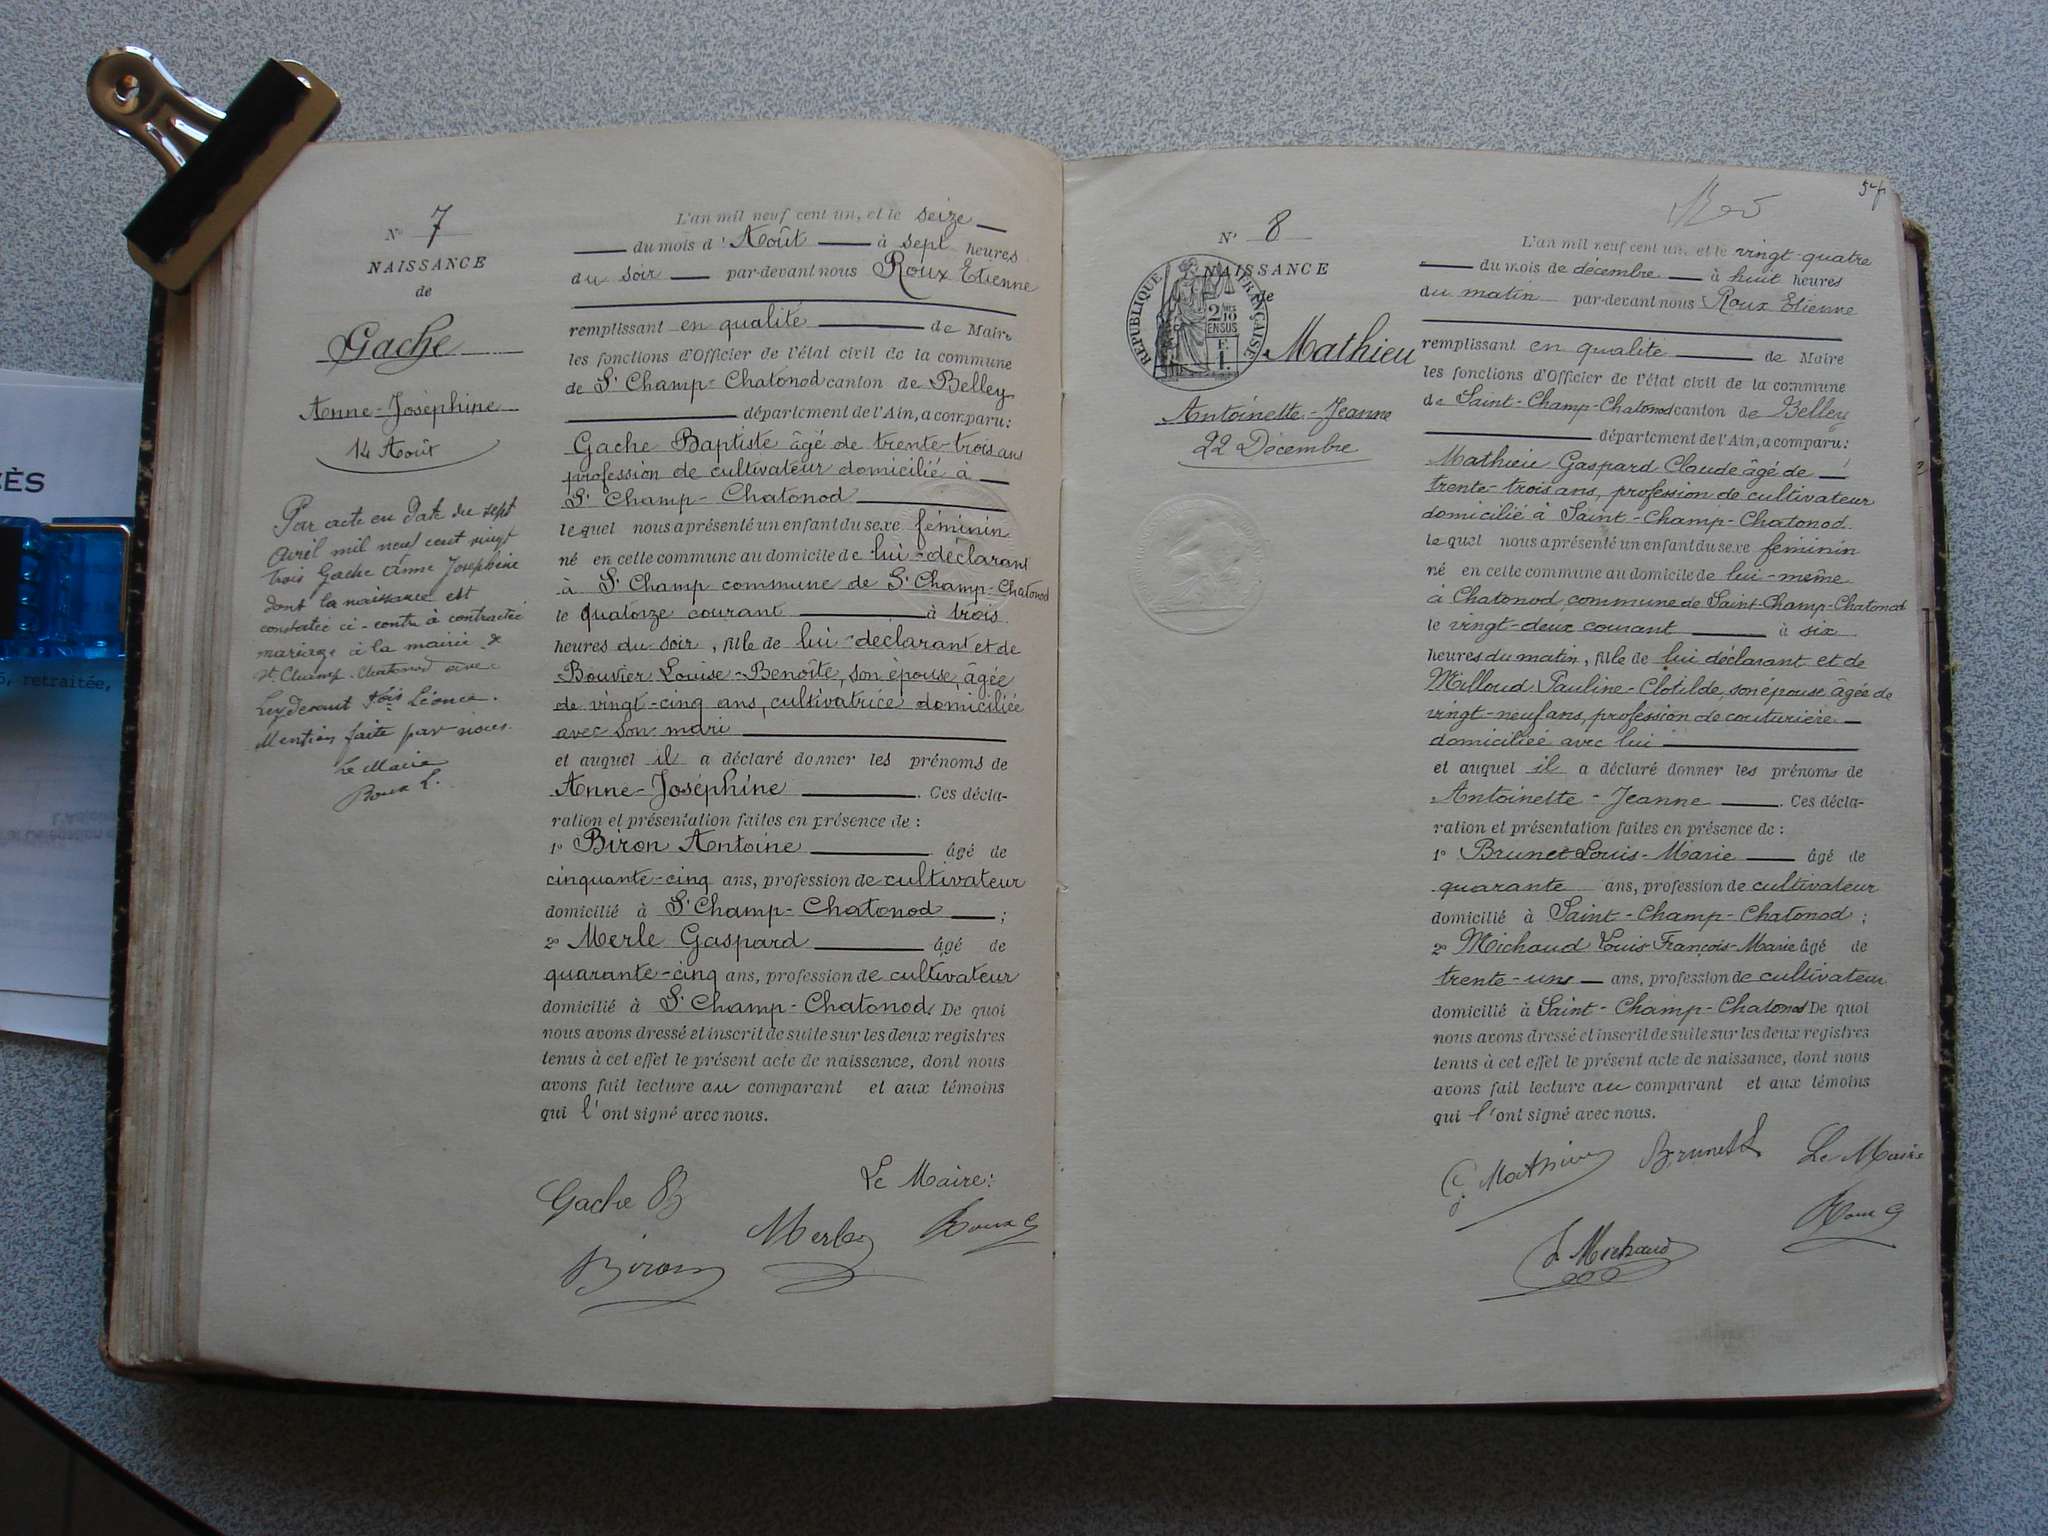 N° 7
NAISSANCE
de
Gache
Anne-Joséphine
14 Août
Par acte en date du sept
avril mil neuf cent vingt
trois Gache Anne Josephine
dont la naissance est
constatée ci-contre à contracté
mariage à la mairie de
St Champ-Chatonod avec
Leyderant Léonce.
Mention faite par nous.
Le Maire
Roux
L'an mil neuf cent un, et le seize
du mois d'Août à sept heures
du soir par-devant nous Roux Etienne
remplissant en qualité de Maire
les fonctions d'Officier de l'état civil de la commune
de St Champ-Chatonod canton de Belley
département de l'Ain, a comparu:
Gache Baptiste âgé de trente-trois ans
profession de cultivateur domicilié à
St Champ-Chatonod
lequel nous a présenté un enfant du sexe féminin
né en cette commune au domicile de lui-déclarant
à St Champ commune de St Champ-Chatonod
le quatorze courant à trois
heures du soir, fille de lui-déclarant et de
Bouvier Louise-Benoîte, son épouse, âgée
de vingt-cinq ans, cultivatrice domiciliée
avec son mari
et auquel il a déclaré donner les prénoms de
Anne-Joséphine. Ces décla-
ration et présentation faites en présence de :
1° Biron Antoine âgé de
cinquante-cinq ans, profession de cultivateur
domicilié à St Champ-Chatonod ;
2° Merle Gaspard âgé de
quarante-cinq ans, profession de cultivateur
domicilié à St Champ-Chatonod. De quoi
nous avons dressé et inscrit de suite sur les deux registres
tenus à cet effet le présent acte de naissance, dont nous
avons fait lecture au comparant et aux témoins
qui l'ont signé avec nous.
Le Maire:
Gache B
Merle
Roux
Biron
N° 8
NAISSANCE
de
RÉPUBLIQUE FRANÇAISE
Mathieu
Antoinette-Jeanne
22 Décembre
L'an mil neuf cent un, et le vingt-quatre
du mois de décembre à huit heures
du matin par-devant nous Roux Etienne
remplissant en qualité de Maire
les fonctions d'Officier de l'état civil de la commune
de Saint-Champ-Chatonod canton de Belley
département de l'Ain, a comparu:
Mathieu Gaspard Claude âgé de
trente-trois ans, profession de cultivateur
domicilié à Saint-Champ-Chatonod.
lequel nous a présenté un enfant du sexe féminin
né en cette commune au domicile de lui-même
à Chatonod, commune de Saint-Champ-Chatonod
le vingt-deux courant à six
heures du matin, fille de lui déclarant et de
Milloud Pauline-Clotilde, son épouse âgée de
vingt-neuf ans, profession de couturière
domiciliée avec lui
et auquel il a déclaré donner les prénoms de
Antoinette-Jeanne. Ces décla-
ration et présentation faites en présence de :
1° Brunet Louis-Marie âgé de
quarante ans, profession de cultivateur
domicilié à Saint-Champ-Chatonod ;
2° Michaud Louis François-Marie âgé de
trente-un ans, profession de cultivateur
domicilié à Saint-Champ-Chatonod De quoi
nous avons dressé et inscrit de suite sur les deux registres
tenus à cet effet le présent acte de naissance, dont nous
avons fait lecture au comparant et aux témoins
qui l'ont signé avec nous.
G. Mathieu Brunet L Le Maire
Roux
Michaud
retraitée,